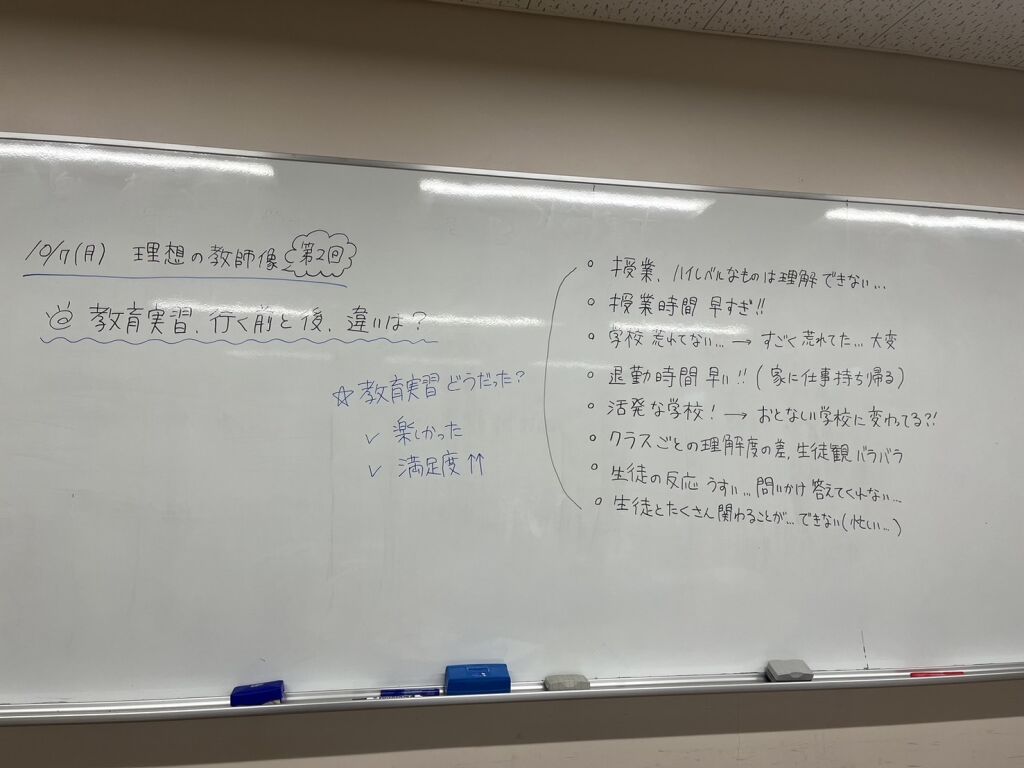 10/7(月) 理想の教師像 第2回
教育実習、行く前と後、違いは?
☆教育実習どうだった?
✓ 楽しかった
✓ 満足度↑↑
○ 授業、ハイレベルなものは理解できない…
○ 授業時間 早すぎ!!
○ 学校荒れてない… → すごく荒れてた… 大変
○ 退勤時間早い!! (家に仕事持ち帰る)
○ 活発な学校! → おとなしい学校に変わってる?!
○ クラスごとの理解度の差、生徒観バラバラ
○ 生徒の反応 うすい… 問いかけ答えてくれない…
○ 生徒とたくさん関わることが… できない(忙しい…)